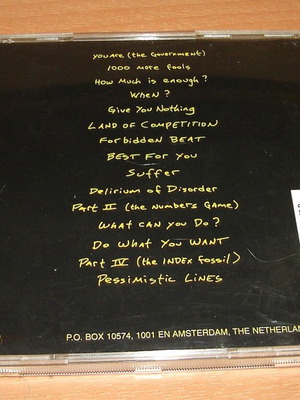 You are (the Government)
1000 more fools
How Much is enough?
When?
Give You Nothing
Land of Competition
Forbidden Beat
Best For You
Suffer
Delirium of Disorder
Part II (the Numbers Game)
What can you Do?
Do What You Want
Part IV (the Index fossil)
Pessimistic Lines
P.O. BOX 10574, 1001 EN AMSTERDAM, THE NETHERLAN